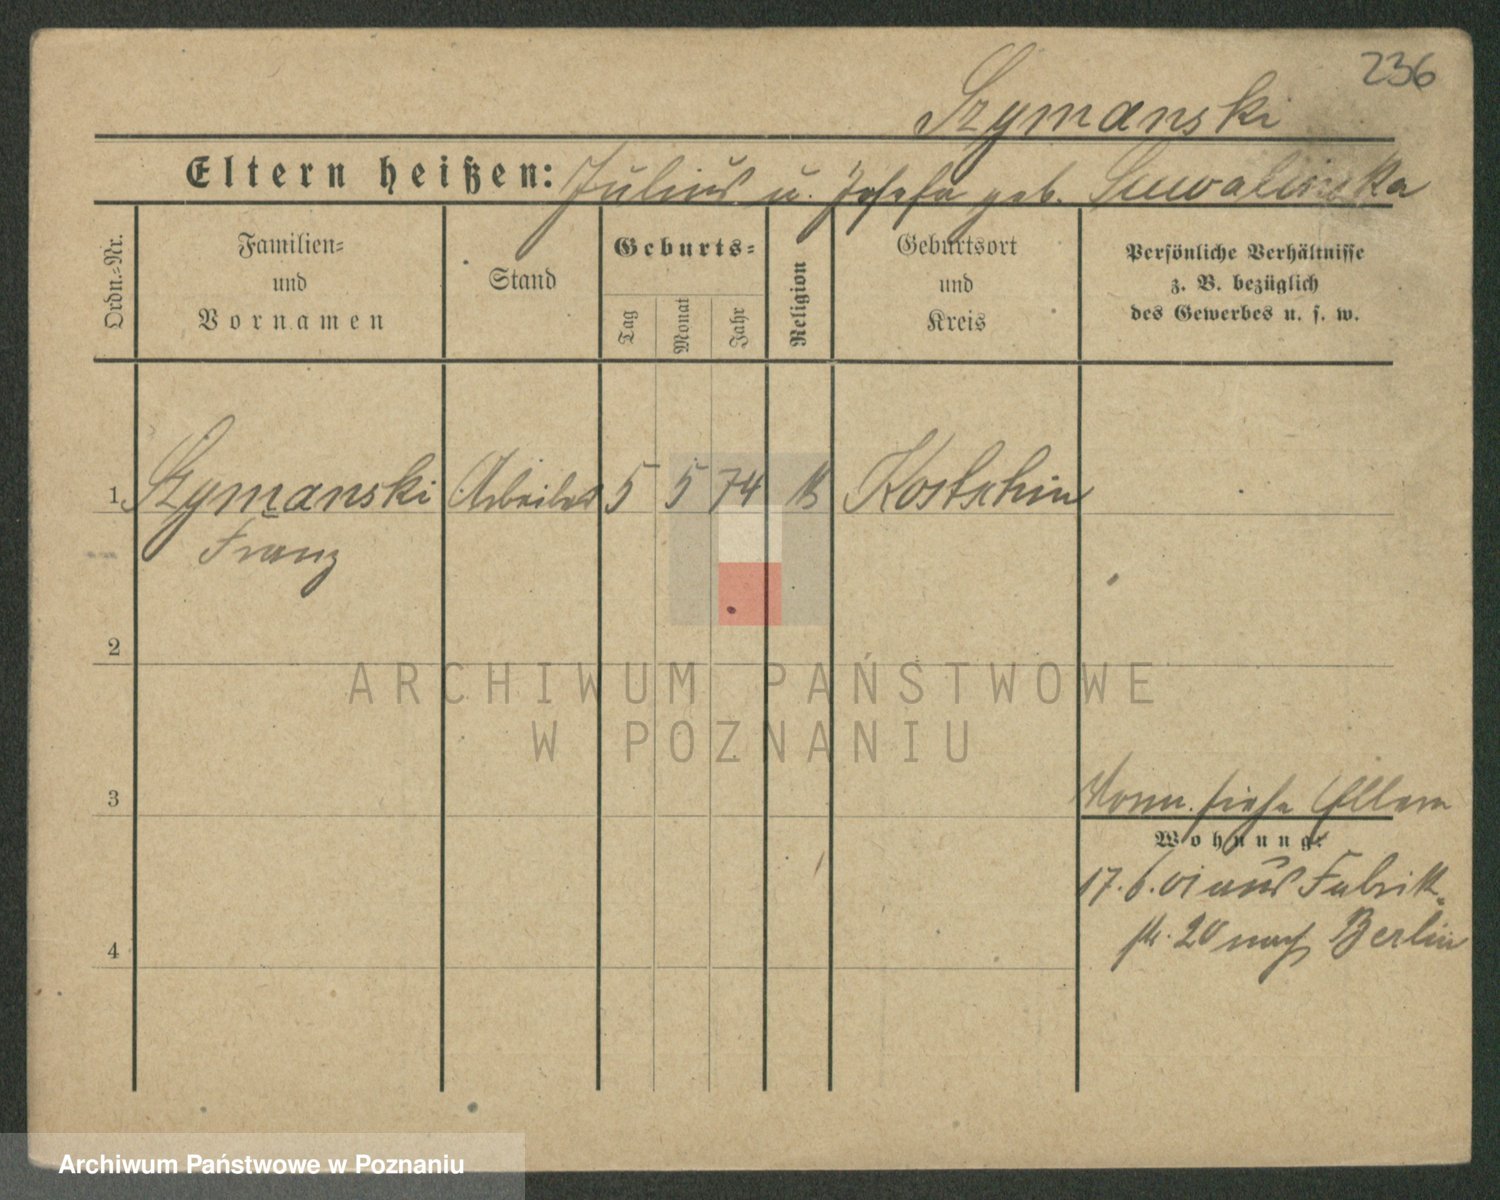 236
Szymanski
Eltern heißen: Julius u. Josefa geb.
Ordn.-Nr.
Familien-
und
Vornamen
Stand
Geburts-
Tag
Monat
Jahr
Religion
Geburtsort
und
Kreis
Persönliche Verhältnisse
z. B. bezüglich
des Gewerbes u. s. w.
1. Szymanski Arbeiter 5 5 74 Kostschin
Franz
2
3
4
siehe Eltern
Wohnung:
17.6.01 aus Fabrik-
str. 20 nach Berlin
ARCHIWUM PAŃSTWOWE
W POZNANIU
Archiwum Państwowe w Poznaniu